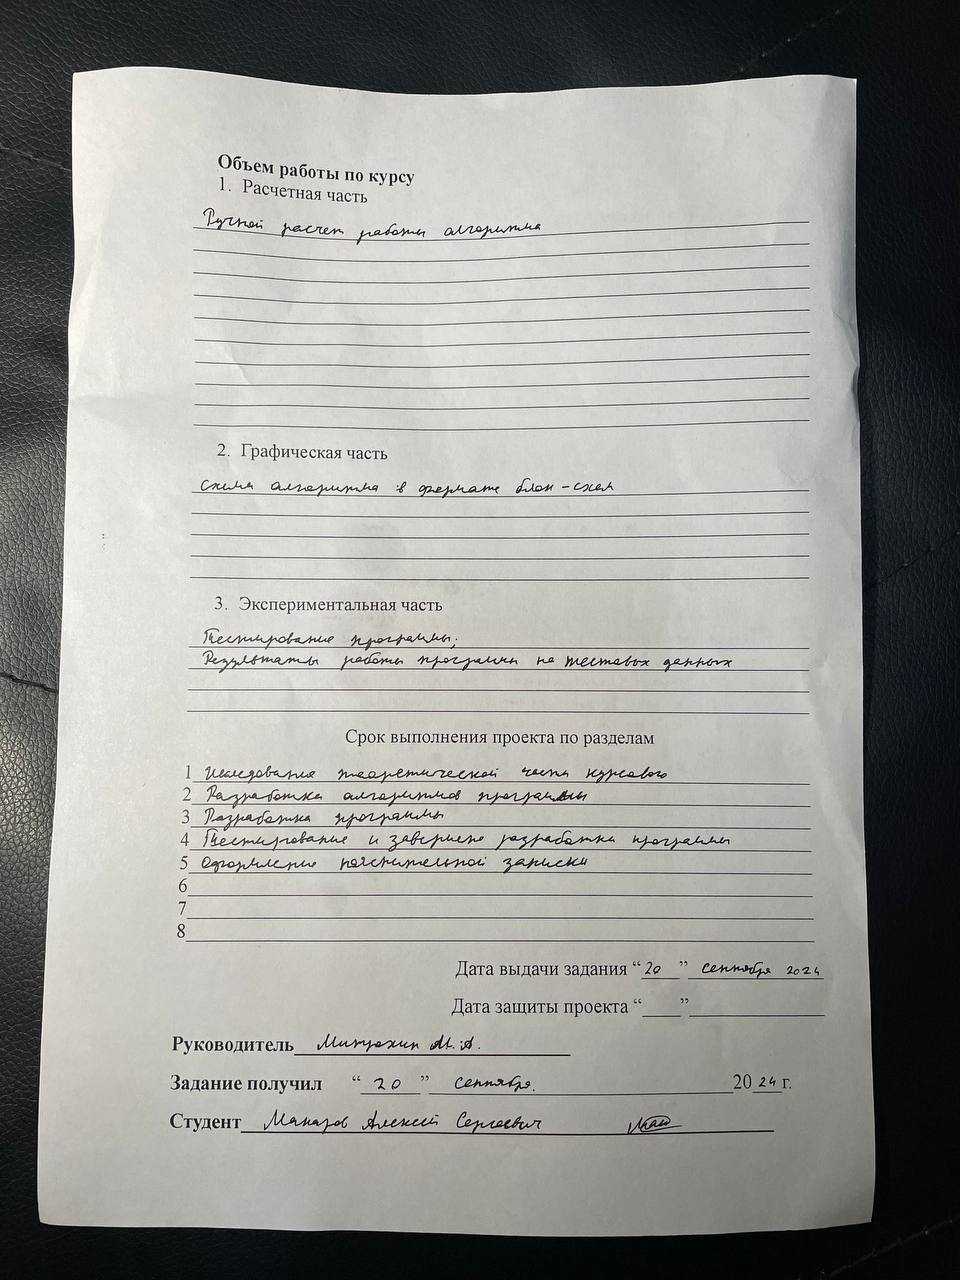 Объем работы по курсу
1. Расчетная часть
Ручной расчет работы алгоритма
2. Графическая часть
схема алгоритма в формате блок-схем
3. Экспериментальная часть
Тестирование программы;
Результаты работы программы на тестовых данных
Срок выполнения проекта по разделам
1 Исследование теоретической части курсового
2 Разработка алгоритмов программы
3 Разработка программы
4 Тестирование и завершение разработки программы
5 Оформление пояснительной записки
6
7
8
Дата выдачи задания “20” сентября 2024
Дата защиты проекта “ ”
Руководитель М.А.
Задание получил “20” сентября. 2024 г.
Студент Макаров Алексей Сергеевич